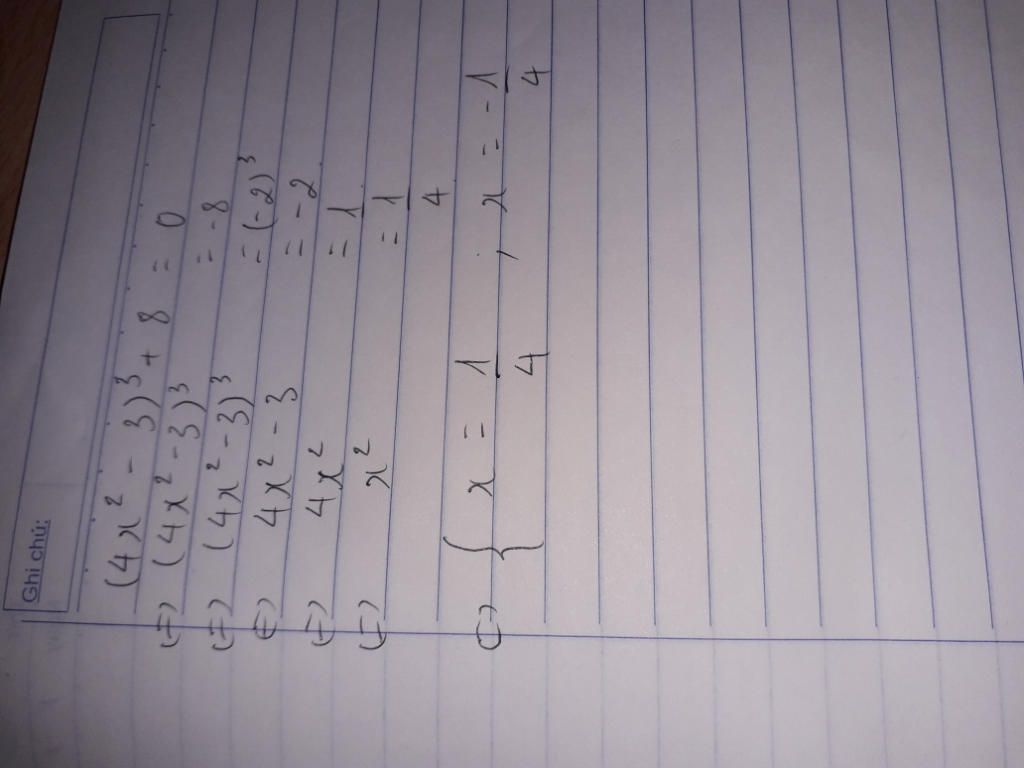 Ghi chú:
(4x² - 3)³ + 8 = 0
(=) (4x² - 3)³ = -8
(=) (4x² - 3)³ = (-2)³
(=) 4x² - 3 = -2
(=) 4x² = 1
(=) x² = 1/4
(=) { x = 1/4 , x = -1/4